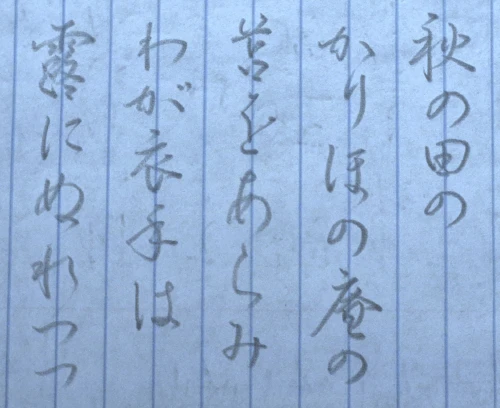 秋の田の
かりほの庵の
苫をあらみ
わが衣手は
露にぬれつつ